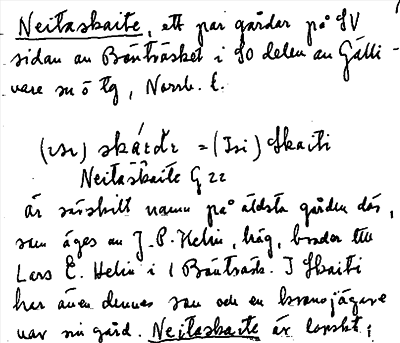 Neitaskaite, ett par gårdar på SV
sidan av Bönträsket i SO delen av Gälli-
vare sn ö lg, Norrb. l.
skáɛtɛ = (Isi) Skaiti
Neitaskaite G 22
är särskilt namn på äldsta gården där,
som äges av J. P. Helin, bror till
Lars E. Helin i Bönträsk. I Skaiti
har även dennes son och en kronojägare
var sin gård. Neitaskaite är lapskt;